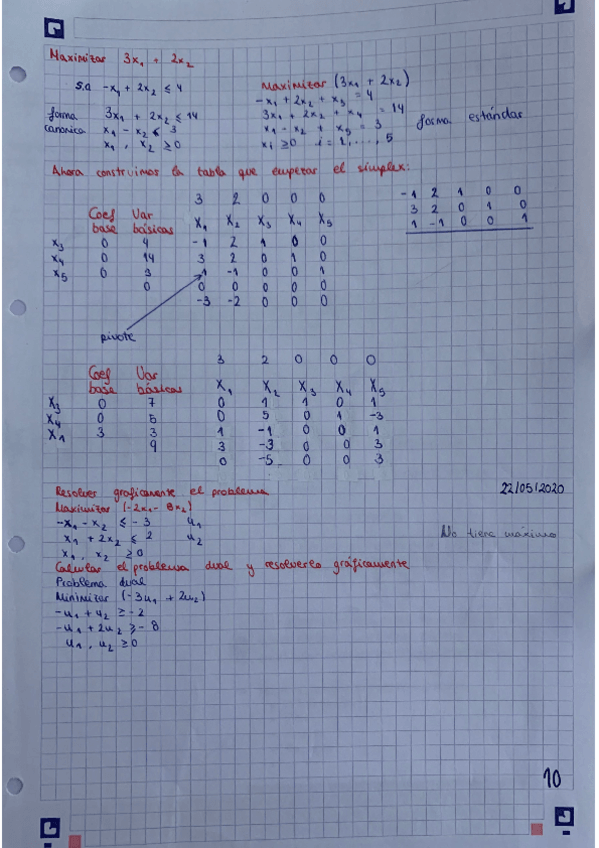 Maximizar 3x₁ + 2x₂
s.a -x₁ + 2x₂ ≤ 4
forma canonica
3x₁ + 2x₂ ≤ 14
x₁ - x₂ ≤ 3
x₁, x₂ ≥ 0
Maximizar (3x₁ + 2x₂)
-x₁ + 2x₂ + x₃ = 4
3x₁ + 2x₂ + x₄ = 14
x₁ - x₂ + x₅ = 3
xᵢ ≥ 0 i = 1, ..., 5
forma estándar
Ahora construimos la tabla que empezar el simplex:
3 2 0 0 0
Coef base Var básicas X₁ X₂ X₃ X₄ X₅
x₃ 0 4 -1 2 1 0 0
x₄ 0 14 3 2 0 1 0
x₅ 0 3 1 -1 0 0 1
0 0 0 0 0 0
-3 -2 0 0 0
-1 2 1 0 0
3 2 0 1 0
1 -1 0 0 1
pivote
3 2 0 0 0
Coef base Var básicas X₁ X₂ X₃ X₄ X₅
X₃ 0 7 0 1 1 0 1
X₄ 0 5 0 5 0 1 -3
X₁ 3 3 1 -1 0 0 1
9 3 -3 0 0 3
0 -5 0 0 3
Resolver graficamente el problema 22/05/2020
Maximizar (-2x₁ - 8x₂)
-x₁ - x₂ ≤ -3 u₁
x₁ + 2x₂ ≤ 2 u₂ No tiene máximo
x₁, x₂ ≥ 0
Calcular el problema dual y resolverlo gráficamente
Problema dual
Minimizar (-3u₁ + 2u₂)
-u₁ + u₂ ≥ -2
-u₁ + 2u₂ ≥ -8
u₁, u₂ ≥ 0
10